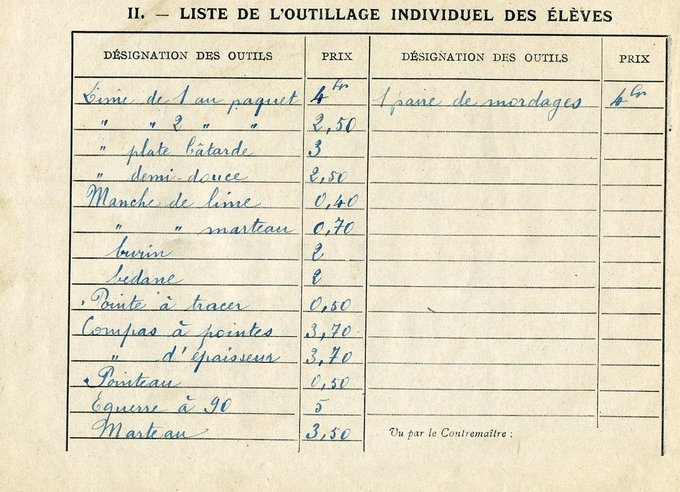 II. — LISTE DE L'OUTILLAGE INDIVIDUEL DES ÉLÈVES
DÉSIGNATION DES OUTILS PRIX DÉSIGNATION DES OUTILS PRIX
Lime de 1 au paquet 4 1 paire de mordages 4
" " 2 " " 2,50
" plate bâtarde 3
" demi-douce 2,50
Manche de lime 0,40
" " marteau 0,70
burin 2
bedane 2
Pointe à tracer 0,50
Compas à pointes 3,70
" d'épaisseur 3,70
Pointeau 0,50
Equerre à 90 5
Marteau 3,50 Vu par le Contremaître :